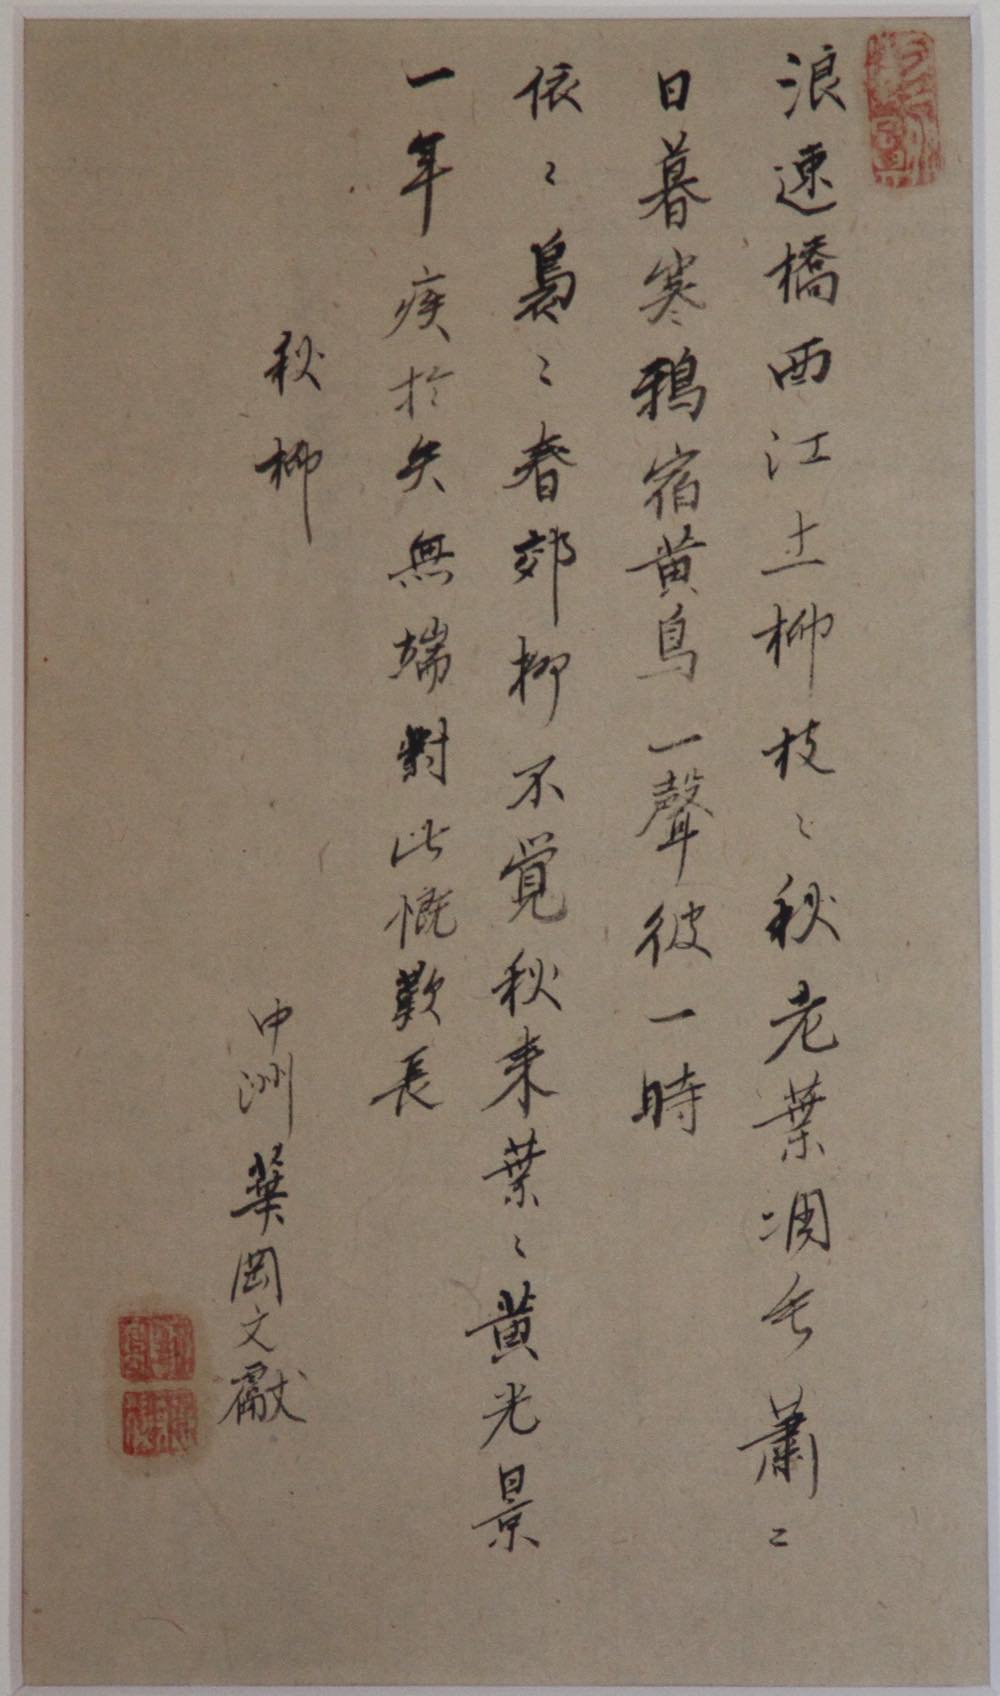 浪速橋西江上柳枝〻秋老葉凋乍蕭〻
日暮寒鴉宿黄鳥一聲彼一時
依〻裊〻春郊柳不覚秋来葉〻黄光景
一年疾於矢無端對此慨歎長
秋柳
中洲葉岡文獻